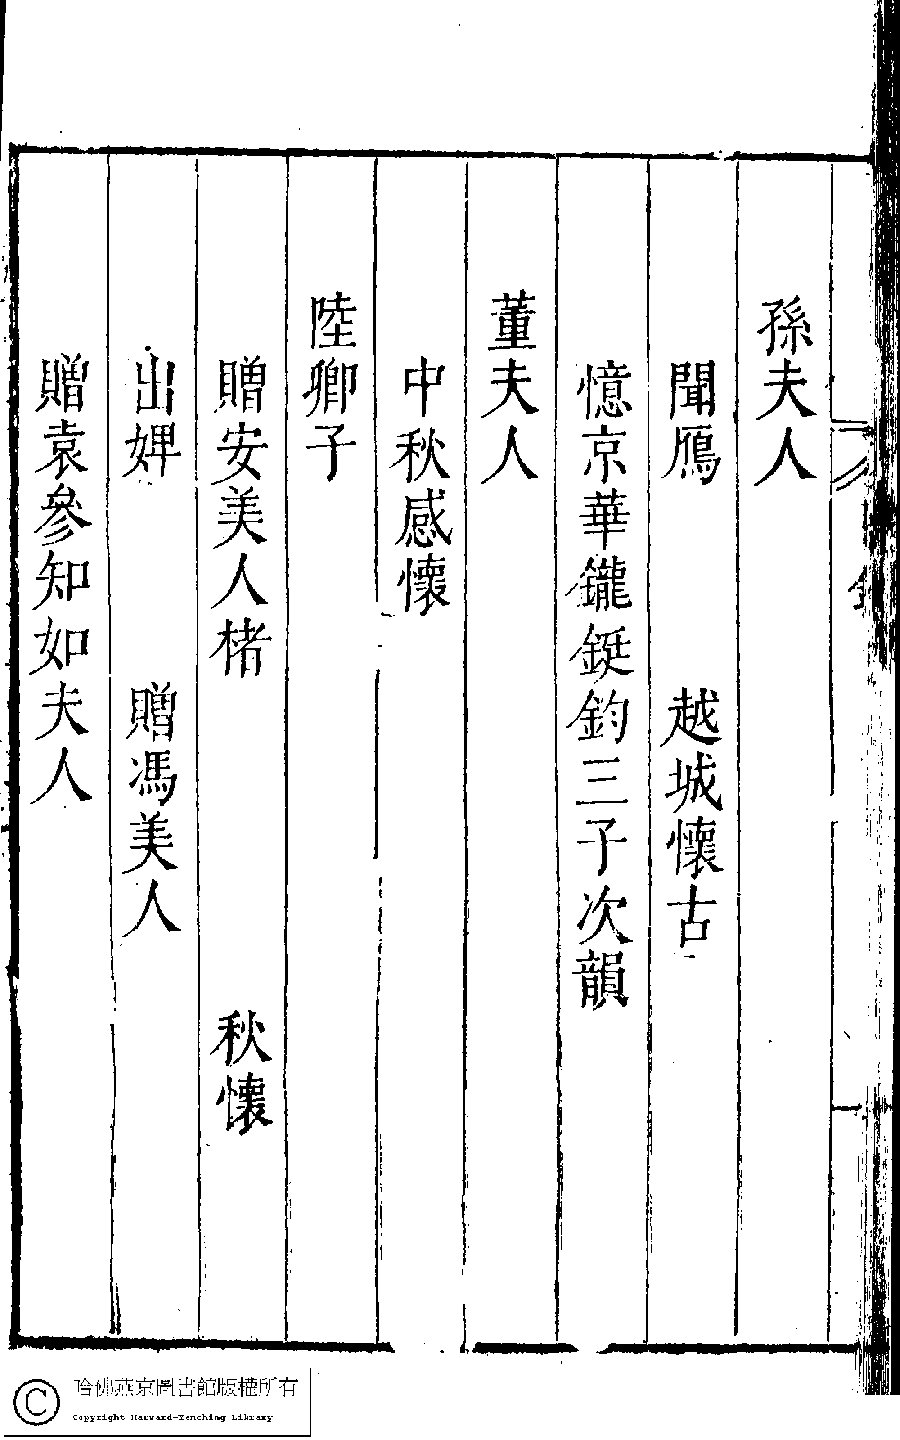 孫夫人
聞鴈　越城懷古
憶京華鑨鋌鈞三子次韻
董夫人
中秋感懷
陸卿子
贈安美人楮　秋懷
出婢　贈馮美人
贈袁參知如夫人
哈佛燕京圖書館版權所有
Copyright Harvard-Yenching Library